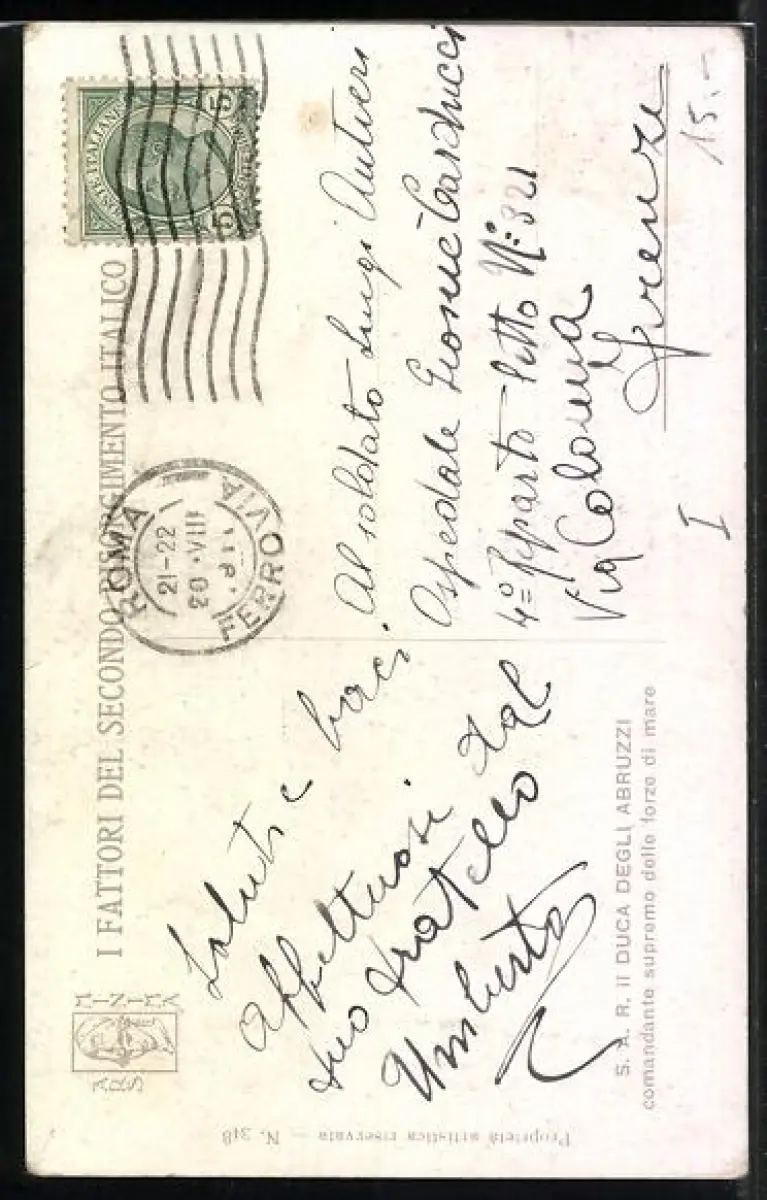 I FATTORI DEL SECONDO RISORGIMENTO ITALICO
POSTE ITALIANE
5 5
ROMA
21-22
20·VIII
FERROVIA
Al soldato Luigi Autieri
Ospedale Giosuè Carducci
4º Reparto - letto Nº 321
Via Colonna
Firenze
15.-
I
Saluti e baci
affettuosi dal
tuo fratello
Umberto
S. A. R. il DUCA DEGLI ABRUZZI
comandante supremo delle forze di mare
ARS
MINIMA
Proprietà artistica riservata — N. 348